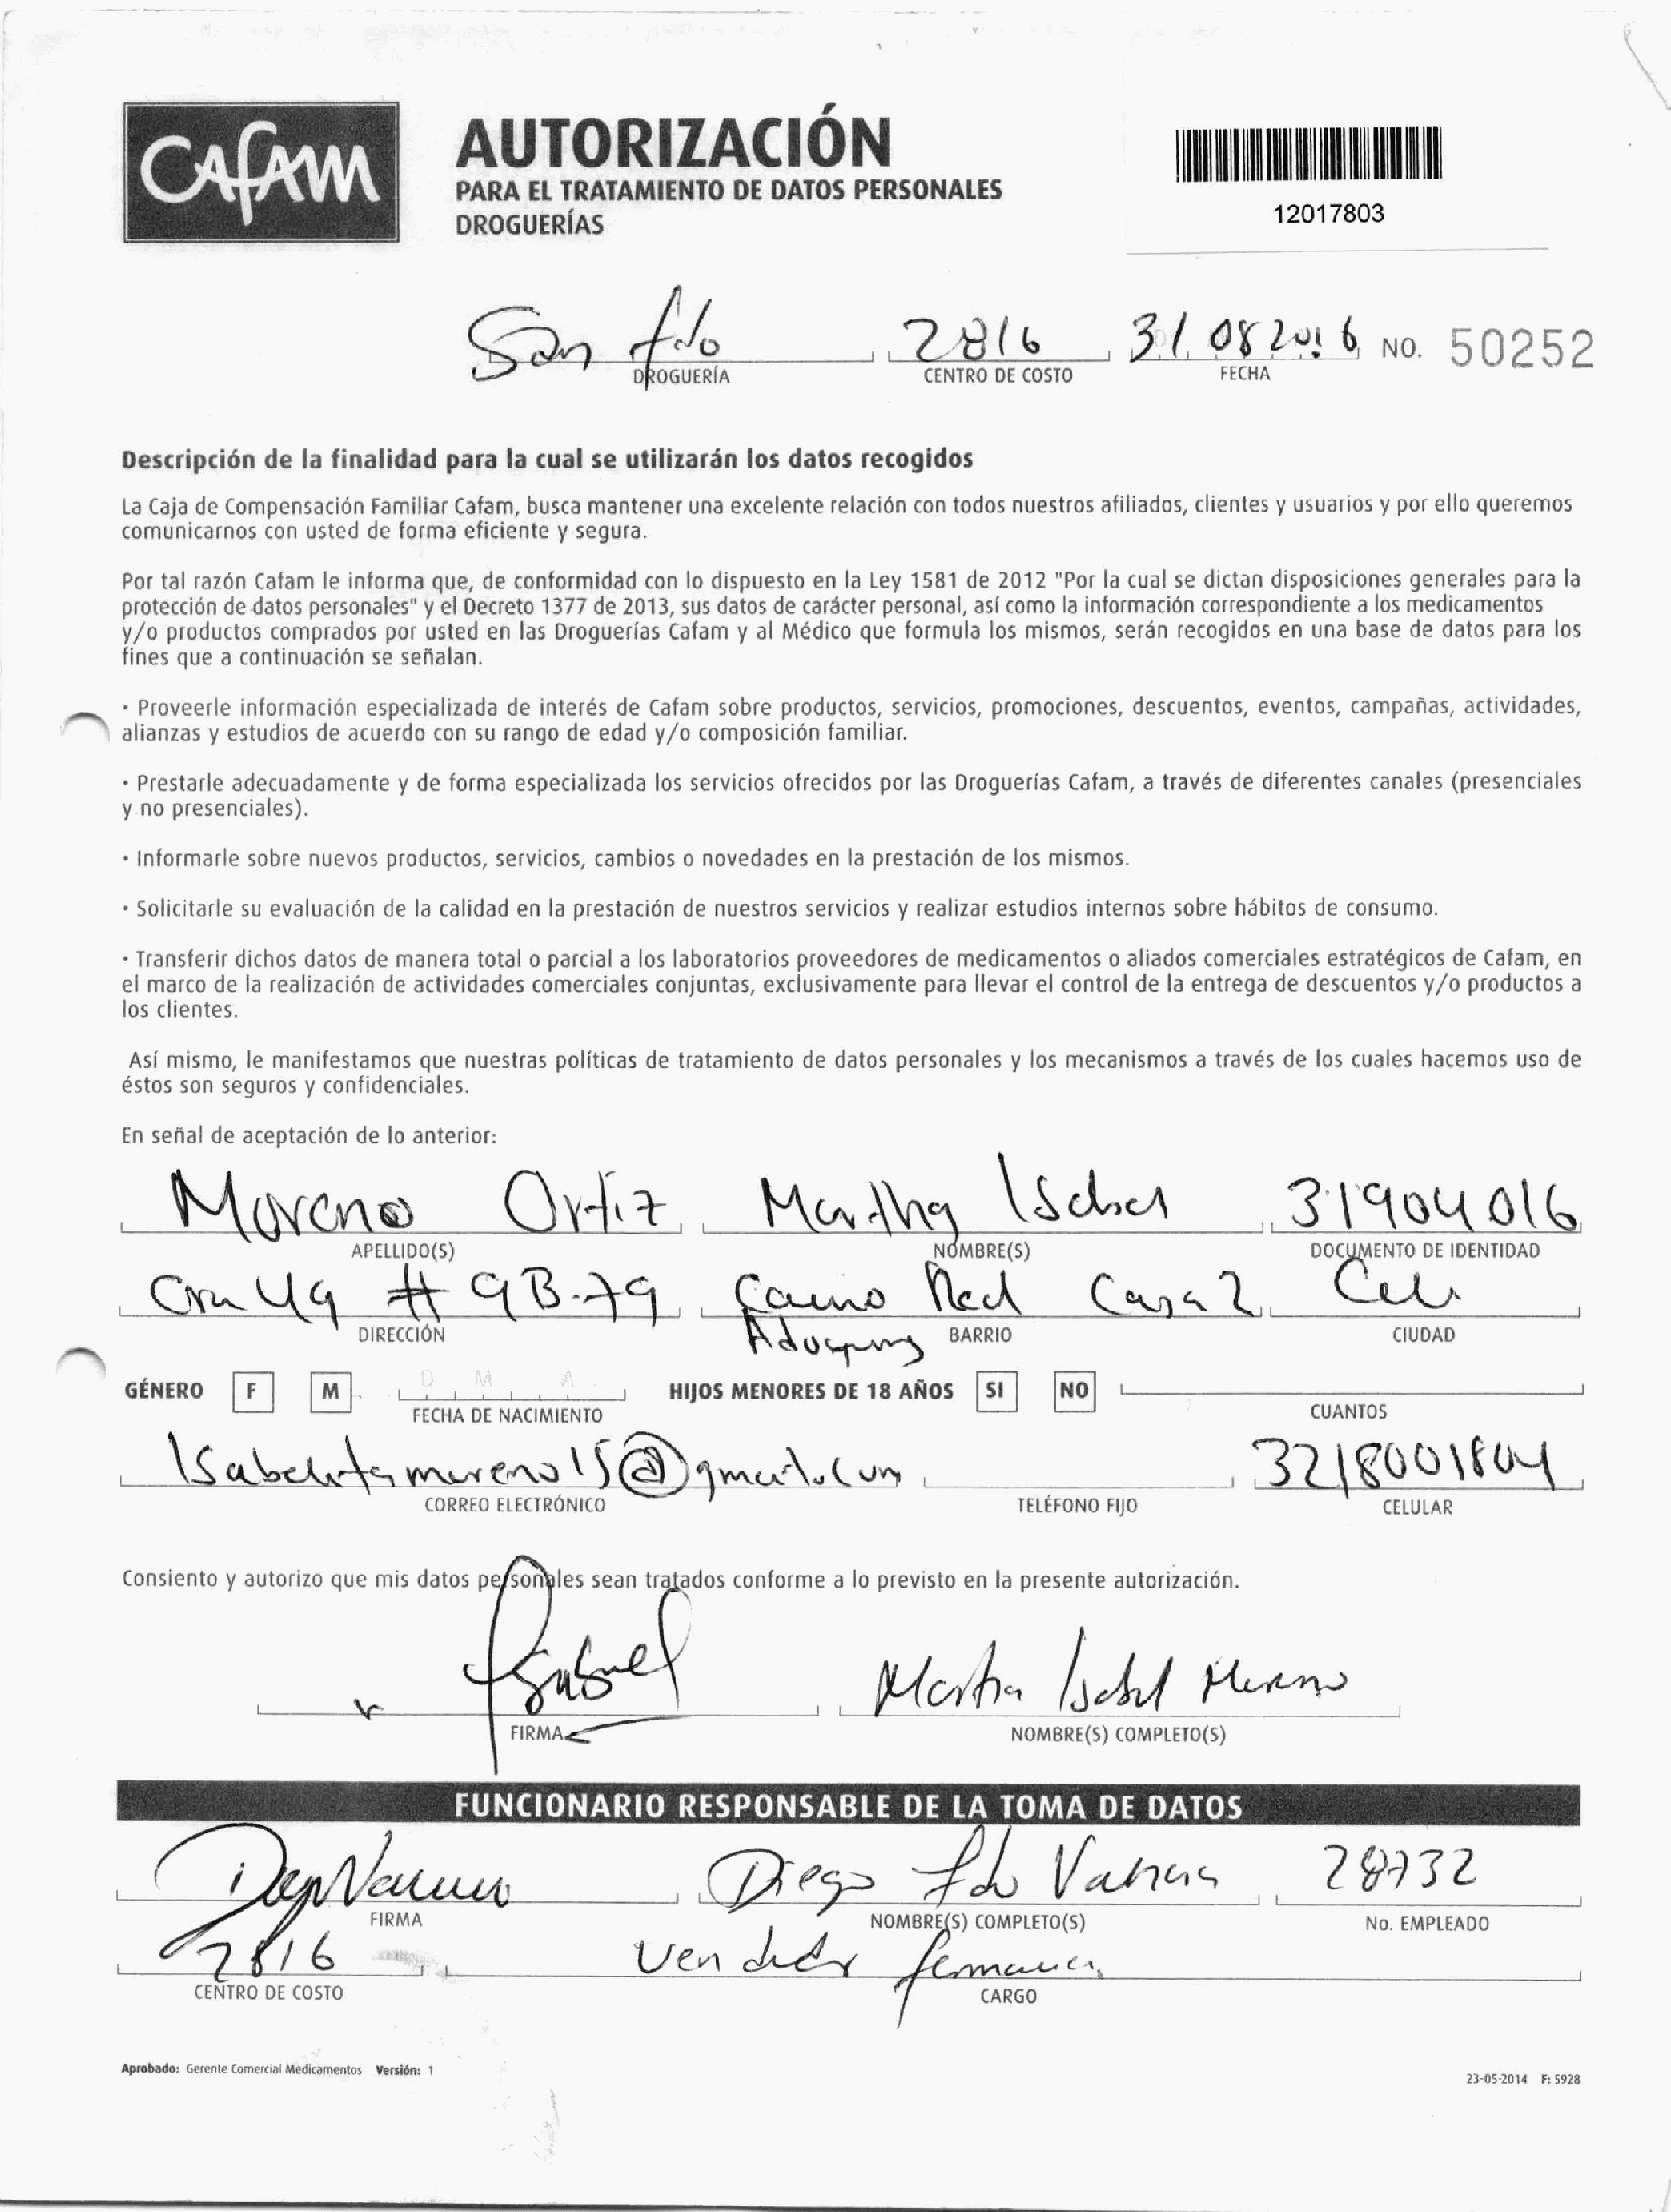 CAFAM
AUTORIZACIÓN
PARA EL TRATAMIENTO DE DATOS PERSONALES
DROGUERÍAS
12017803
San fdo 2816 31 08 2016 NO. 50252
DROGUERÍA CENTRO DE COSTO FECHA
Descripción de la finalidad para la cual se utilizarán los datos recogidos
La Caja de Compensación Familiar Cafam, busca mantener una excelente relación con todos nuestros afiliados, clientes y usuarios y por ello queremos
comunicarnos con usted de forma eficiente y segura.
Por tal razón Cafam le informa que, de conformidad con lo dispuesto en la Ley 1581 de 2012 "Por la cual se dictan disposiciones generales para la
protección de datos personales" y el Decreto 1377 de 2013, sus datos de carácter personal, así como la información correspondiente a los medicamentos
y/o productos comprados por usted en las Droguerías Cafam y al Médico que formula los mismos, serán recogidos en una base de datos para los
fines que a continuación se señalan.
· Proveerle información especializada de interés de Cafam sobre productos, servicios, promociones, descuentos, eventos, campañas, actividades,
alianzas y estudios de acuerdo con su rango de edad y/o composición familiar.
· Prestarle adecuadamente y de forma especializada los servicios ofrecidos por las Droguerías Cafam, a través de diferentes canales (presenciales
y no presenciales).
· Informarle sobre nuevos productos, servicios, cambios o novedades en la prestación de los mismos.
· Solicitarle su evaluación de la calidad en la prestación de nuestros servicios y realizar estudios internos sobre hábitos de consumo.
· Transferir dichos datos de manera total o parcial a los laboratorios proveedores de medicamentos o aliados comerciales estratégicos de Cafam, en
el marco de la realización de actividades comerciales conjuntas, exclusivamente para llevar el control de la entrega de descuentos y/o productos a
los clientes.
Así mismo, le manifestamos que nuestras políticas de tratamiento de datos personales y los mecanismos a través de los cuales hacemos uso de
éstos son seguros y confidenciales.
En señal de aceptación de lo anterior:
Moreno Ortiz Martha Isabel 31904016
APELLIDO(S) NOMBRE(S) DOCUMENTO DE IDENTIDAD
Cra 49 # 9B-79 Camino Real Casa 2 Cali
DIRECCIÓN BARRIO CIUDAD
GÉNERO F M D M A HIJOS MENORES DE 18 AÑOS SI NO
FECHA DE NACIMIENTO CUANTOS
Isabelitamoreno15@gmail.com 3218001804
CORREO ELECTRÓNICO TELÉFONO FIJO CELULAR
Consiento y autorizo que mis datos personales sean tratados conforme a lo previsto en la presente autorización.
Martha Isabel Moreno
FIRMA NOMBRE(S) COMPLETO(S)
FUNCIONARIO RESPONSABLE DE LA TOMA DE DATOS
Diego fdo Valencia 28732
FIRMA NOMBRE(S) COMPLETO(S) No. EMPLEADO
2816 Vendedor farmacia
CENTRO DE COSTO CARGO
Aprobado: Gerente Comercial Medicamentos Versión: 1
23-05-2014 F: 5928